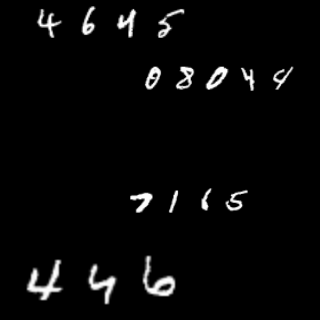 4645
08044
7165
446